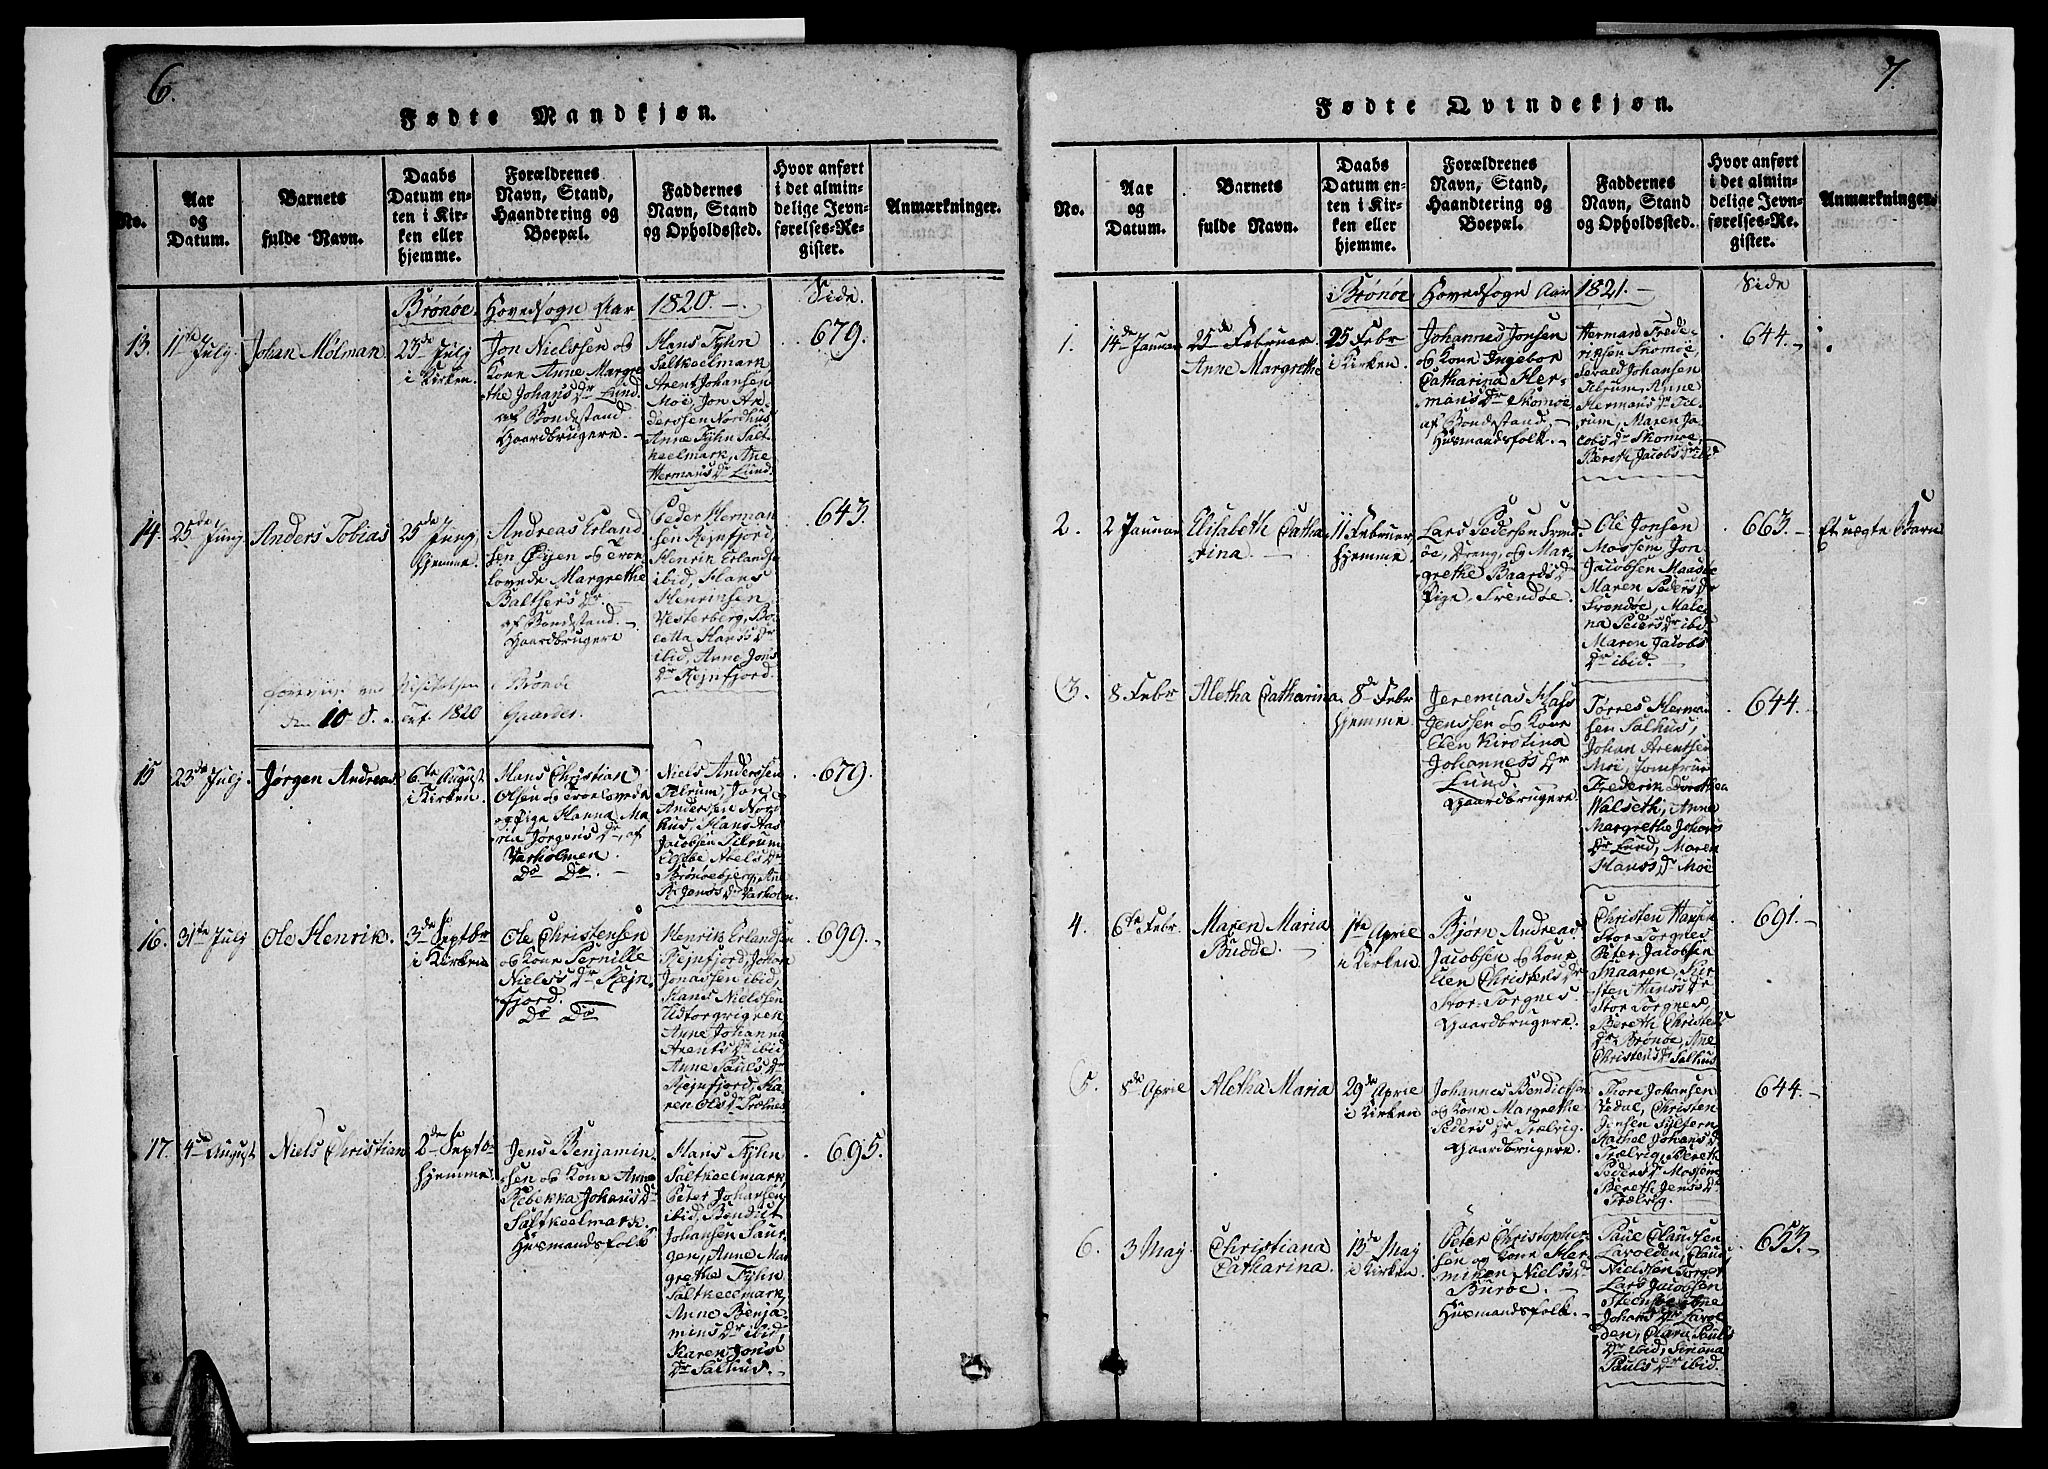 6.
Fødte Mandkjøn.
No.
Aar
og
Datum.
Barnets
fulde Navn.
Daabs
Datum en-
ten i Kir-
ken eller
hjemme.
Forældrenes
Navn, Stand,
Haandtering og
Boepæl.
Faddernes
Navn, Stand
og Opholdssted.
Hvor anført
i det almin-
delige Jevn-
førelses-Re-
gister.
Anmærkninger.
Brønøe Hovedsogn Aar 1820 Side.
13.
11te July
Johan Mölman
23de Julj
i Kirken.
Jon Nielssen og
Kone Anne Margre
the Johans Dr Lund.
af Bondestand.
Gaardbrugere.
Hans Fÿhn
Saltkeelmark
Arent Johansen
Moe, Jon An
derssen Nordhus
Anne Fÿhn Salt
keelmark, Ane
Hermans Dr Lund.
679.
14.
25de Junj
Anders Tobias
25de Junj
Hjemme.
Andreas Erland
sen Øÿen og Troe
lovede Margrethe
Balthers Dr.
af Bondestand.
Gaardbrugere
Peder Herman
sen Rejnfjord,
Henrik Erlands
ibid, Hans
Henriksen
Vesterberg, Bo
letta Hans Dr
ibid, Anne Jons
Dr Rejnfjord.
643.
Visitatsen Brønøe
den 10 1820 Gaarder
15
23de Julj.
Jørgen Andreas
6te August
i Kirken.
Hans Christian
Olsen og Troelovede
Pige Hanna Ma
ria Jørgens Dr, af
Varholmen.
Do Do.
Niels Anderssen
Tilrum, Jon
Andersen Nord
hus, Hans Aas
Jacobsen Tilrum
Abels Dr
Brønøebjerg, Ane
Jonss Dr Varholm.
679.
16.
31te Julj
Ole Henrik.
3de Septbr
i Kirken
Ole Christensen
og Kone Pernille
Nielss Dr Rejn
fjord.
Do Do
Henrik Erlandsen
Rejnfjord, Johan
Jonassen ibid,
Hans Nielssen
Udtorgrignen
Anne Johanna
Arents Dr ibid
Anne Pauls Dr
Rejnfjord, Ka
ren Ols Dr Trælnes
699.
17.
4de August
Niels Christian
2de Septbr
Hjemme.
Jens Benjamin
sen og Kone Anne
Rebekka Johans Dr
Saltkeelmark.
Husmandsfolk
Hans Fÿhn
Saltkeelmark,
Peter Johansen
ibid, Bendict
Johansen Saur
gen, Anne Mar
grethe Fÿhn
Saltkeelmark,
Anne Benja
mins Dr ibid,
Karen Jons
Dr Salhus.
695.
7.
Fødte Qvindekjøn.
No.
Aar
og
Datum.
Barnets
fulde Navn.
Daabs
Datum en-
ten i Kir-
ken eller
hjemme.
Forældrenes
Navn, Stand,
Haandtering og
Boepæl.
Faddernes
Navn, Stand
og Opholdssted.
Hvor anført
i det almin-
delige Jevn-
førelses-Re-
gister.
Anmærkninger.
Brønøe Hovedsogn Aar 1821. Side
1.
14de Januar
25de Februar
Anne Margrethe
25 Febr
i Kirken.
Johannes Jonsen
og Kone Ingebor
Catharina Her-
mans Dr Skomoe,
af Bondestand,
Husmandsfolk.
Herman Frede-
riksen Skomoe,
Johansen
Tilrum, Anne
Hermans Dr Til-
rum, Maren Ja
cobs Dr Skomoe,
Bereth Jacobs Dr ibid
644.
2.
2 Januar
Elisabeth Catha
rina
11 Februar
Hjemme.
Lars Pedersen Trond
øe, Dreng, og Mar-
grethe Baards Dr
Pige, Trondøe.
Ole Jonsen
Mossem, Jon
Jacobsen Maasøe
Maren Peders Dr
Trondøe, Male
na Peders Dr ibid
Maren Jacobs
Dr ibid.
663.
Et uægte Barn
3.
8 Febr
Aletha Catharina
8de Febr
Hjemme.
Jeremias Hass
Jenssen og Kone
Elen Kirstina
Johanness Dr
Lund.
Gaardbrugere.
Tørres Herman
sen Salhus,
Johan Arentsen
Moe, Jomfrue
Frederik Dorothea
Walseth, Anne
Margrethe Johans
Dr Lund, Maren
Hanss Dr Moe
644.
4.
6te Febr.
Maren Maria
Budde.
1ste April
i Kirken.
Bjørn Andreas
Jacobsen og Kone
Elen Christens Dr
Stor-Torgnes.
Gaardbrugere.
Christen Hansen
Stor Torgnes
Peter Jacobsen
Snaaren, Kir
sten Hanss Dr
Stor Torgnes,
Bereth Christens
Dr Brønøe, Ane
Christens Dr Salhus
691.
5.
8de April
Aletha Maria
29de April
i Kirken
Johannes Bendictsen
og Kone Margrethe
Peders Dr Trælvig.
Gaardbrugere.
Thore Johansen
Christen
Jensen Tilrem
Rachel Johans Dr
Trælvig, Bereth
Peders Dr Mossem
Bereth Jens Dr
Trælvig.
644.
6.
3 Maj
Christiana
Catharina.
13de Maj
i Kirken.
Peter Christopher
sen og Kone Her
miken Niels Dr
Buröe.
Husmandsfolk.
Paul Claudsen
Lavolden, Claus
Nielssen Torget
Lars Jacobsen
Steensøe, Ane
Johans Dr Lavol
den, Clara Pauls
Dr ibid, Simona
Pauls Dr ibid.
653.